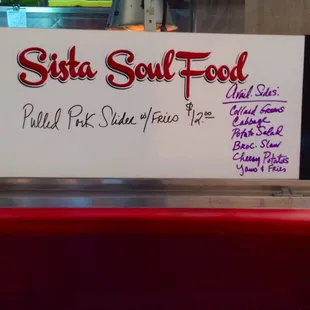 Sista Soul Food
Pulled Pork Slider w/Fries $12.00
Avail Sides:
Collard Greens
Cabbage
Potato Salad
Broc. Slaw
Cheesy Potatoes
Yams & Fries